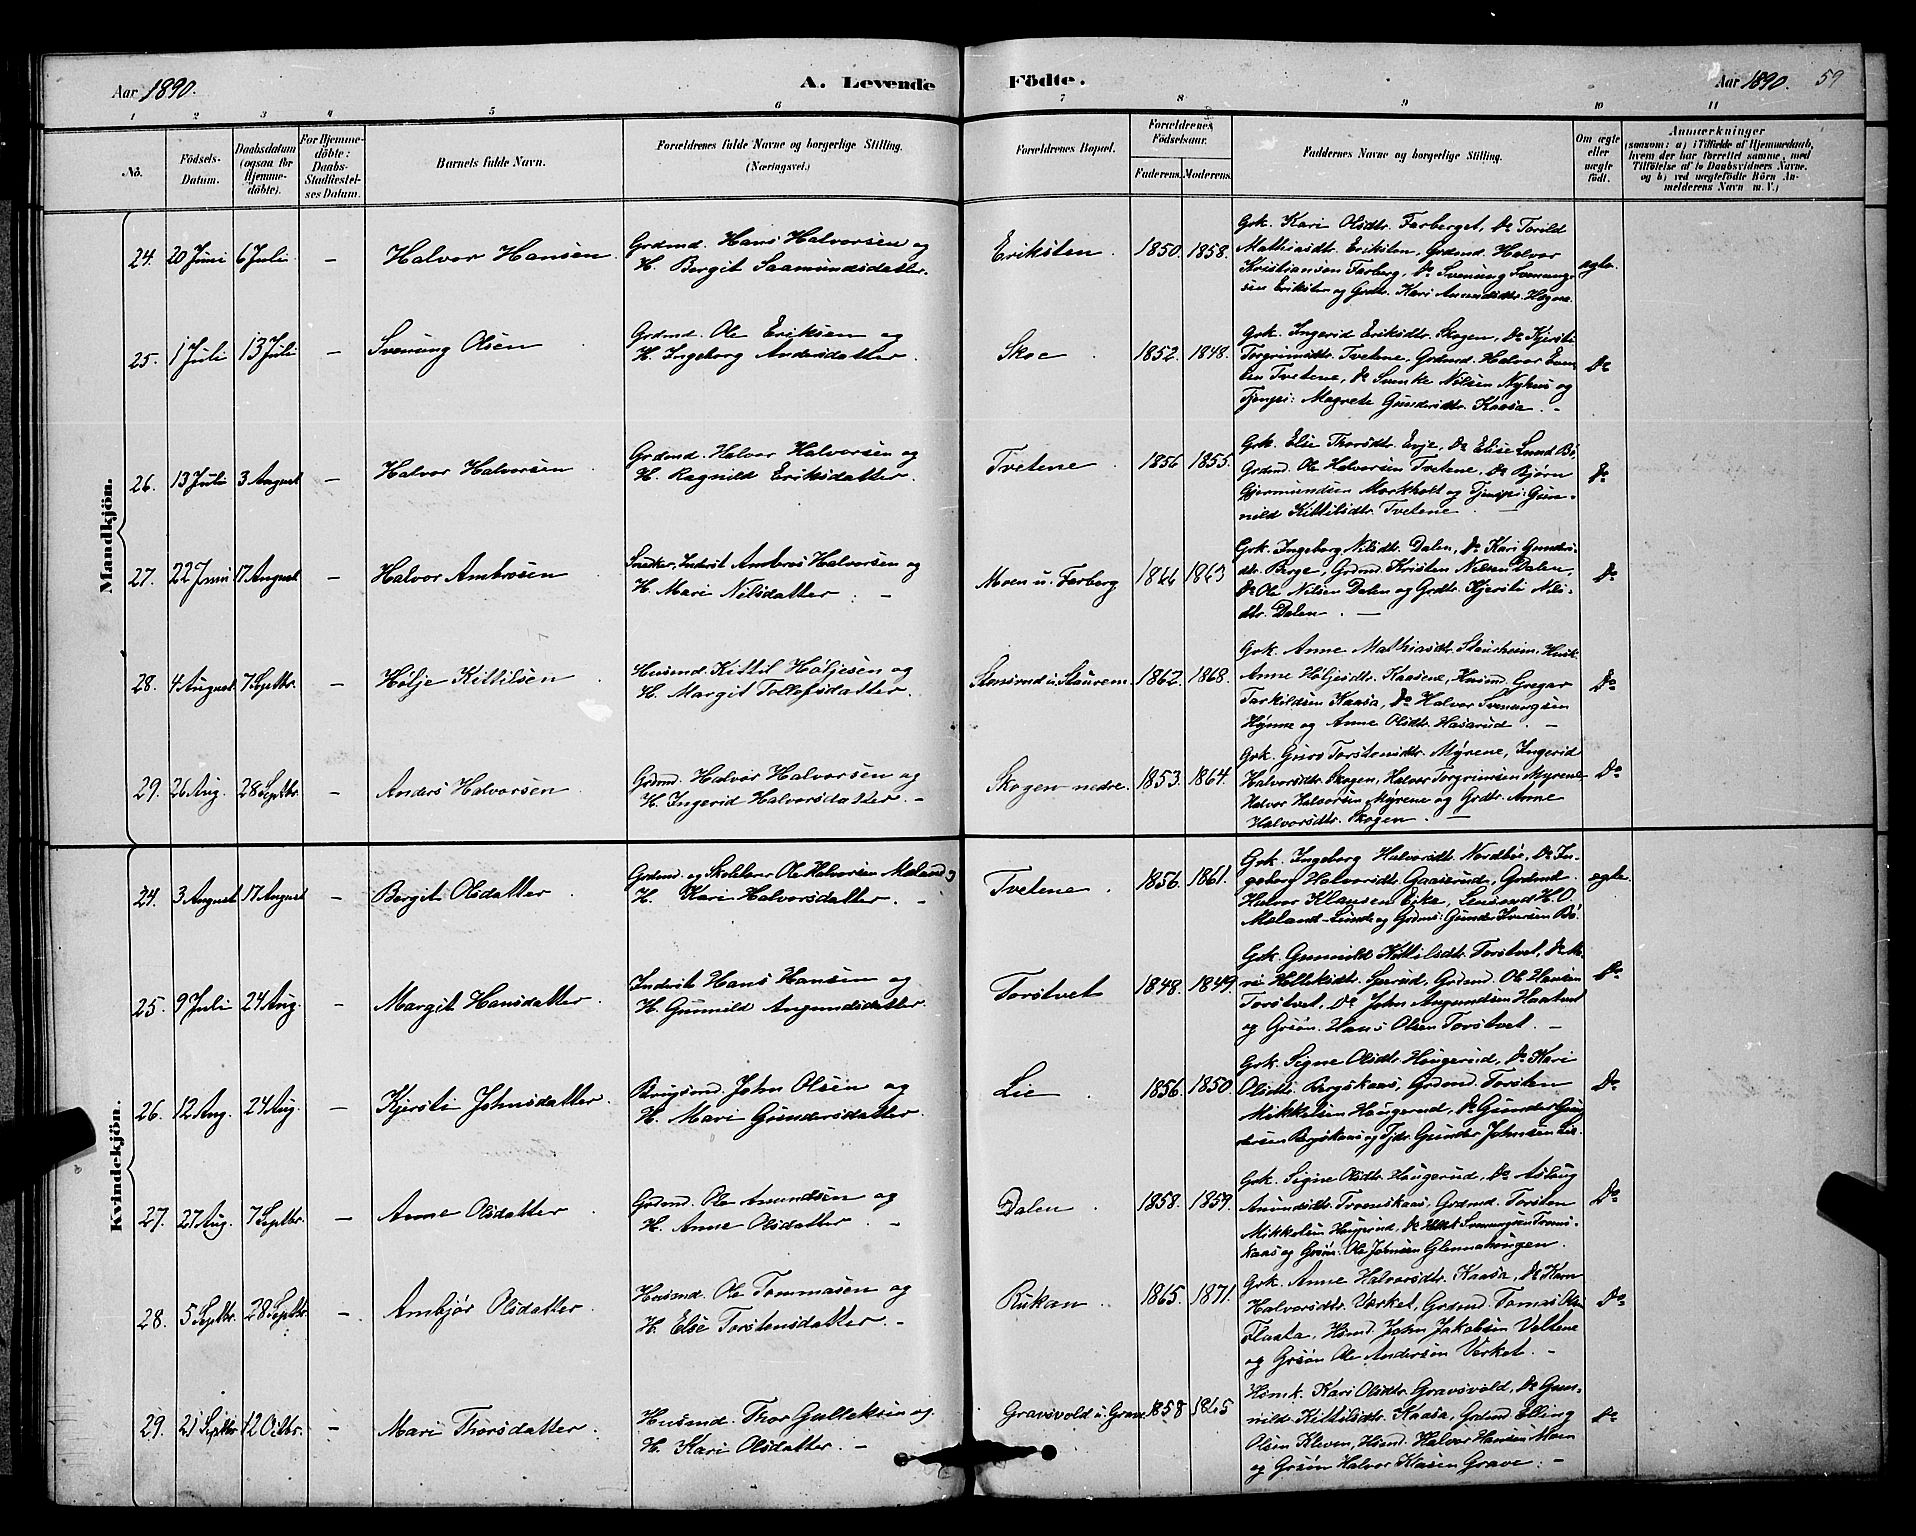 Aar 1890.
A. Levende Födte.
Aar 1890. 59
1 2 3 4 5 6 7 8 9 10 11
No.
Födsels-Datum.
Daabsdatum (ogsaa for Hjemmedöbte).
For Hjemmedöbte: Daabs-Stadfæstelses Datum.
Barnets fulde Navn.
Forældrenes fulde Navne og borgerlige Stilling. (Næringsvei.)
Forældrenes Bopæl.
Forældrenes Födselsaar.
Faderens. Moderens.
Faddernes Navne og borgerlige Stilling.
Om ægte eller uægte födt.
Anmærkninger
(saasom: a) i Tilfælde af Hjemmedaab, hvem der har forrettet samme, med Tilföielse af to Daabsvidners Navne, og b) ved uægtefödte Börn Anmelderens Navn m. V.)
Mandkjön.
24. 20 Juni 6 Juli - Halvor Hansen. Grdmd. Hans Halvorsen og
H. Bergit Saamundsdatter.
Eriksten. 1850. 1858.
Grk. Kari Olsdtr. Farberget, Do Torild
Mathiasdtr. Eriksten, Grdmd. Halvor
Kristiansen Farberg, Do Svenung Svenung-
sen Eriksten og Grdtr. Kari Amundsdtr. Hegna.
ægte.
25. 1 Juli 13 Juli - Svenung Olsen Grdmd. Ole Eriksen og
H. Ingeborg Andersdatter.
Skoe. 1852. 1848.
Grk. Ingerid Eriksdtr. Skogen, Do Kjersti
Torgrimsdtr. Tvetene, Grdmd. Halvor Even-
sen Tvetene, Do Svenke Nilsen Nyhus og
Tjenpi: Magrete Gundersdtr. Kaasa. -
Do
26. 13 Juli 3 August - Halvor Halvorsen Grdmd. Halvor Halvorsen og
H. Ragnild Eriksdatter.
Tvetene. 1856 1855.
Grk. Else Thorsdtr. Evje, Do Elise Lund Bö
Grdmd. Ole Halvorsen Tvetene, Do Bjørn
Gjermundsen Markholt og Tjenpi: Gun-
nild Kittilsdtr. Tvetene. -
Do
27. 22 Juni 17 August - Halvor Ambrosen Inderst Ambros Halvorsen og
H. Mari Nilsdatter. -
Moen u. Farberg 1863
Grk. Ingeborg Nilsdtr. Dalen, Do Kari Gunders-
dtr. Berge, Grdmd. Kristen Nilsen Dalen,
Do Ole Nilsen Dalen og Grdtr. Kjersti Nils-
dtr. Dalen. -
Do
28. 4 August 7 Septbr. - Hølje Kittilsen Husmd. Kittil Høljesen og
H. Margit Tollefsdatter.
1862. 1868.
Grk. Anne Mathiasdtr. Stausheim, Husk.
Anne Høljesdtr. Kaasene, Husmd. Gregar
Tarkildsen Kaasa, Do Halvor Svenungsen
Hynne og Anne Olsdtr. Hasarud. -
Do
29. 26 Aug. 28 Septbr. - Anders Halvorsen Grdmd. Halvor Halvorsen og
H. Ingerid Halvorsdatter. -
Skogen nedre. 1853. 1864.
Grk. Guro Torstensdtr. Myrene, Ingerid
Halvorsdtr. Skogen, Halvor Torgrimsen Myrene
Halvor Halvorsen Myrene og Grdtr. Anne
Halvorsdtr. Skogen. -
Do
Kvindekjön.
24. 3 August 17 August - Bergit Olsdatter Grdmd. og Skolelærer Ole Halvorsen Maland og
H. Kari Halvorsdatter. -
Tvetene. 1856. 1861.
Grk. Ingeborg Halvorsdtr. Nordbøe, Do In-
geborg Halvorsdtr. Gaaserud, Grdmd.
Halvor Klausen Eika, Lensmd H. O.
Maland Lunde og Grdmd: Gunder Iversen Bö.
ægte.
25. 9 Juli 24 Aug. - Margit Hansdatter. Inderst Hans Hansen og
H. Gunnild Amundsdatter
Torstvet 1848. 1849.
Grk. Gunnild Kittilsdtr. Torstvet,
Grdmd. Ole Hansen
Torstvet, Do John Haatvet
og Grsön. Hans Olsen Torstvet. -
Do
26. 12 Aug. 24 Aug. - Kjersti Johnsdatter. Brugsmd. John Olsen og
H. Mari Gundersdatter.
Lie. 1856. 1850.
Grk. Signe Olsdtr. Haugerud, Do Kari
Olsdtr. Bergskaas, Grdmd. Torsten
Mikkelsen Haugerud, Do Gunder Gun-
dersen Bergskaas og Gunder Johnsen Lie.
Do
27. 27 Aug. 7 Septbr. - Anne Olsdatter. Grdmd. Ole Amundsen og
H. Anne Olsdatter. -
Dalen. 1858. 1859.
Grk. Signe Olsdtr. Haugerud, Do Aslaug
Amundsdtr. Tronuskaas, Grdmd. Torsten
Mikkelsen Haugerud, Do Svenungsen Tronus-
kaas og Grsön. Ole Johnsen Glennahaugen.
Do
28. 5 Septbr. 28 Septbr. - Ambjør Olsdatter. Husmd. Ole Tommasen og
H. Else Torstensdatter. -
Rukan. 1865. 1871.
Grk. Anne Halvorsdtr. Kaasa, Do Karn
Halvorsdtr. Værket, Grdmd. Tomas Olsen
Flaata, Husmd. John Jakobsen Valtene
og Grsön Ole Andersen Værket. -
Do
29. 21 Septbr. 12 Octbr. - Mari Thorsdatter. Husmd. Thor Gulleksen og
H. Kari Olsdatter. -
Gravsvold u. Grave 1858 1865
Husmk. Kari Olsdtr. Gravsvold, Do Gun-
nild Kittilsdtr. Kaasa, Grdmd Elling
Olsen Kleven, Husmd. Halvor Hansen Moen
og Grsön Halvor Klasen Grave. -
Do